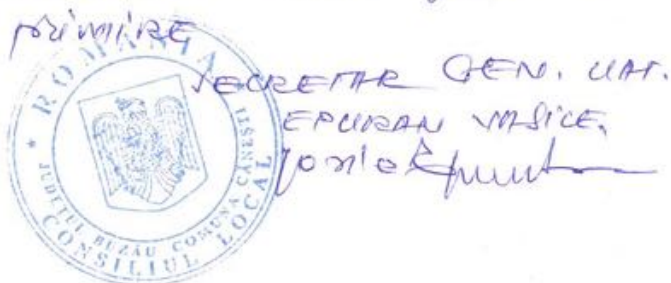 primire
SECRETAR GEN. UAT.
EPURAN VASILE.
* ROMÂNIA *
JUDEŢUL BUZĂU COMUNA CĂNEŞTI
CONSILIUL LOCAL